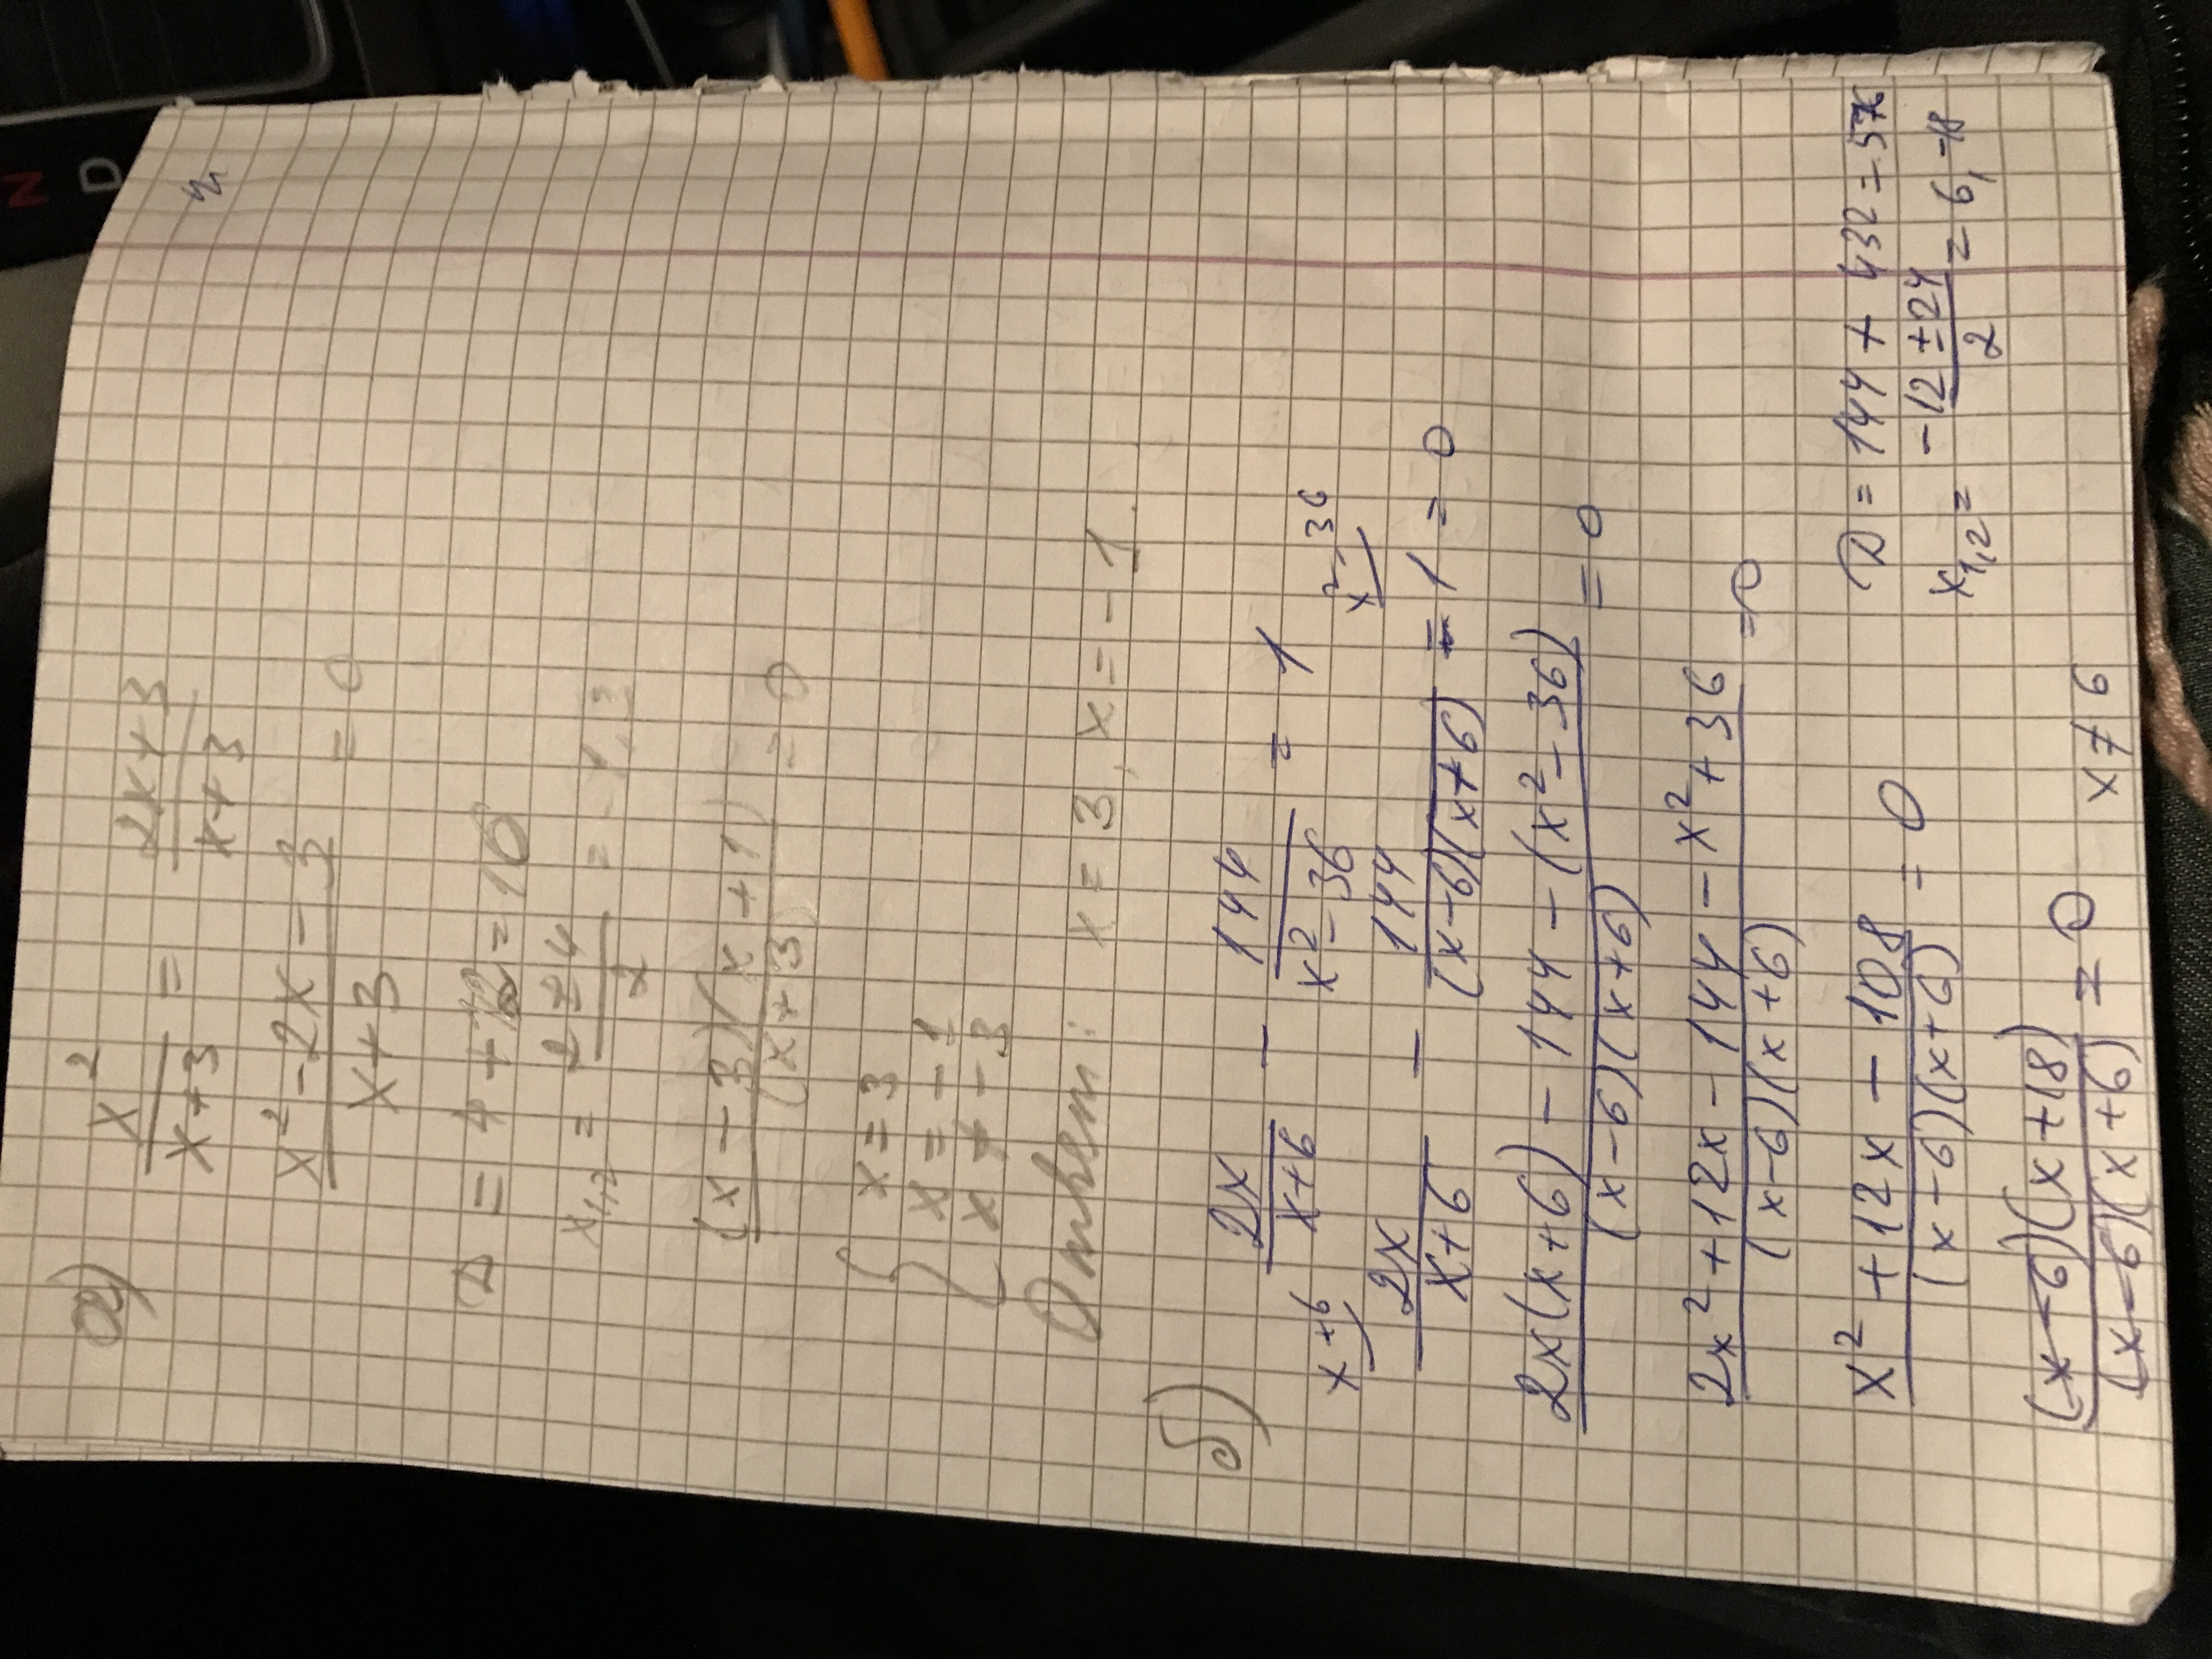 N D
ч
а) x²/(x+3) = (2x+3)/(x+3)
(x² - 2x - 3)/(x+3) = 0
D = 4 + 12 = 16
x₁,₂ = (2 ± 4)/2 = -1, 3
(x - 3)(x + 1)/(x + 3) = 0
{ x = 3
x = -1
x ≠ -3
Ответ: x = 3, x = -1.
б) 2x/(x+6) - 144/(x² - 36) = 1
x+6 x² - 36
2x/(x+6) - 144/((x-6)(x+6)) - 1 = 0
(2x(x+6) - 144 - (x² - 36))/((x-6)(x+6)) = 0
(2x² + 12x - 144 - x² + 36)/((x-6)(x+6)) = 0
(x² + 12x - 108)/((x-6)(x+6)) = 0 D = 144 + 432 = 576
x₁,₂ = (-12 ± 24)/2 = 6, -18
(x-6)(x+18)/((x-6)(x+6)) = 0 x ≠ 6